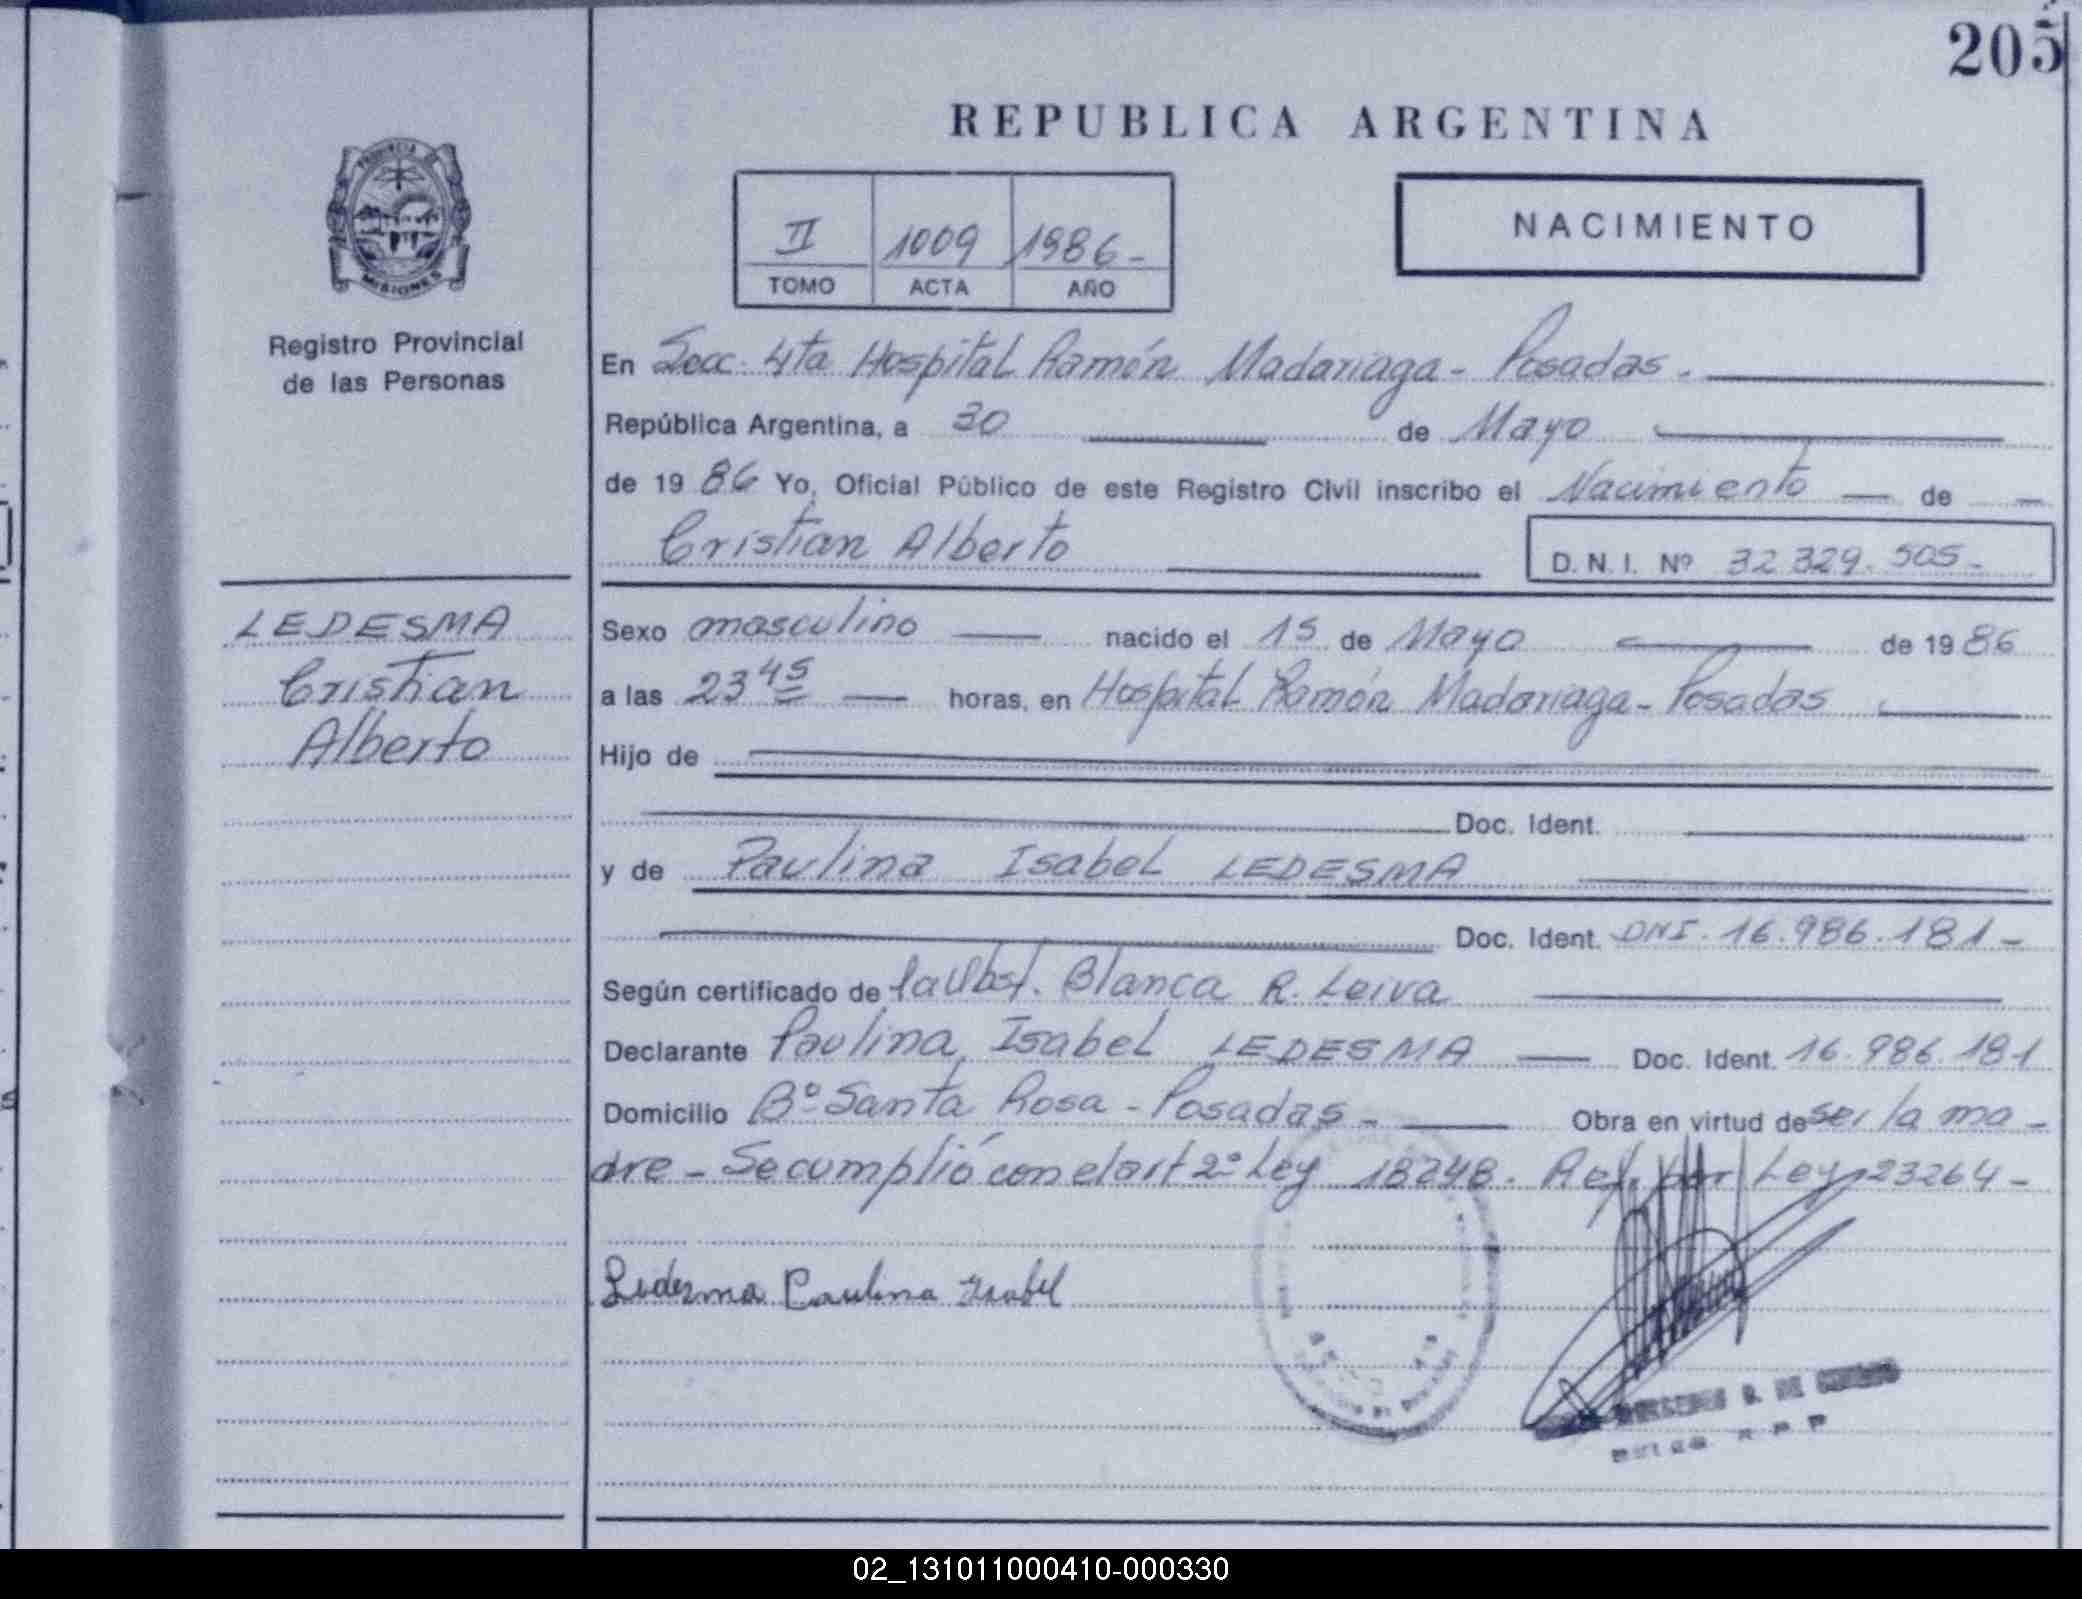 205
REPUBLICA ARGENTINA
PROVINCIA DE
MISIONES
Registro Provincial
de las Personas
II 1009 1986-
TOMO ACTA AÑO
NACIMIENTO
En Secc. 4ta Hospital Ramón Madariaga - Posadas.
República Argentina, a 30 de Mayo
de 19 86 Yo, Oficial Público de este Registro Civil inscribo el Nacimiento de
Cristian Alberto
D. N. I. Nº 32.329.505-
LEDESMA
Cristian
Alberto
Sexo masculino nacido el 15 de Mayo de 19 86
a las 23 45 horas, en Hospital Ramón Madariaga - Posadas
Hijo de
Doc. Ident.
y de Paulina Isabel LEDESMA
Doc. Ident. DNI. 16.986.181-
Según certificado de la Obst. Blanca R. Leiva
Declarante Paulina Isabel LEDESMA Doc. Ident. 16.986.181
Domicilio Bº Santa Rosa - Posadas - Obra en virtud de ser la ma-
dre - Se cumplió con el art 2º Ley 18248. Ref. por Ley 23264-
Ledesma Paulina Isabel
02_131011000410-000330